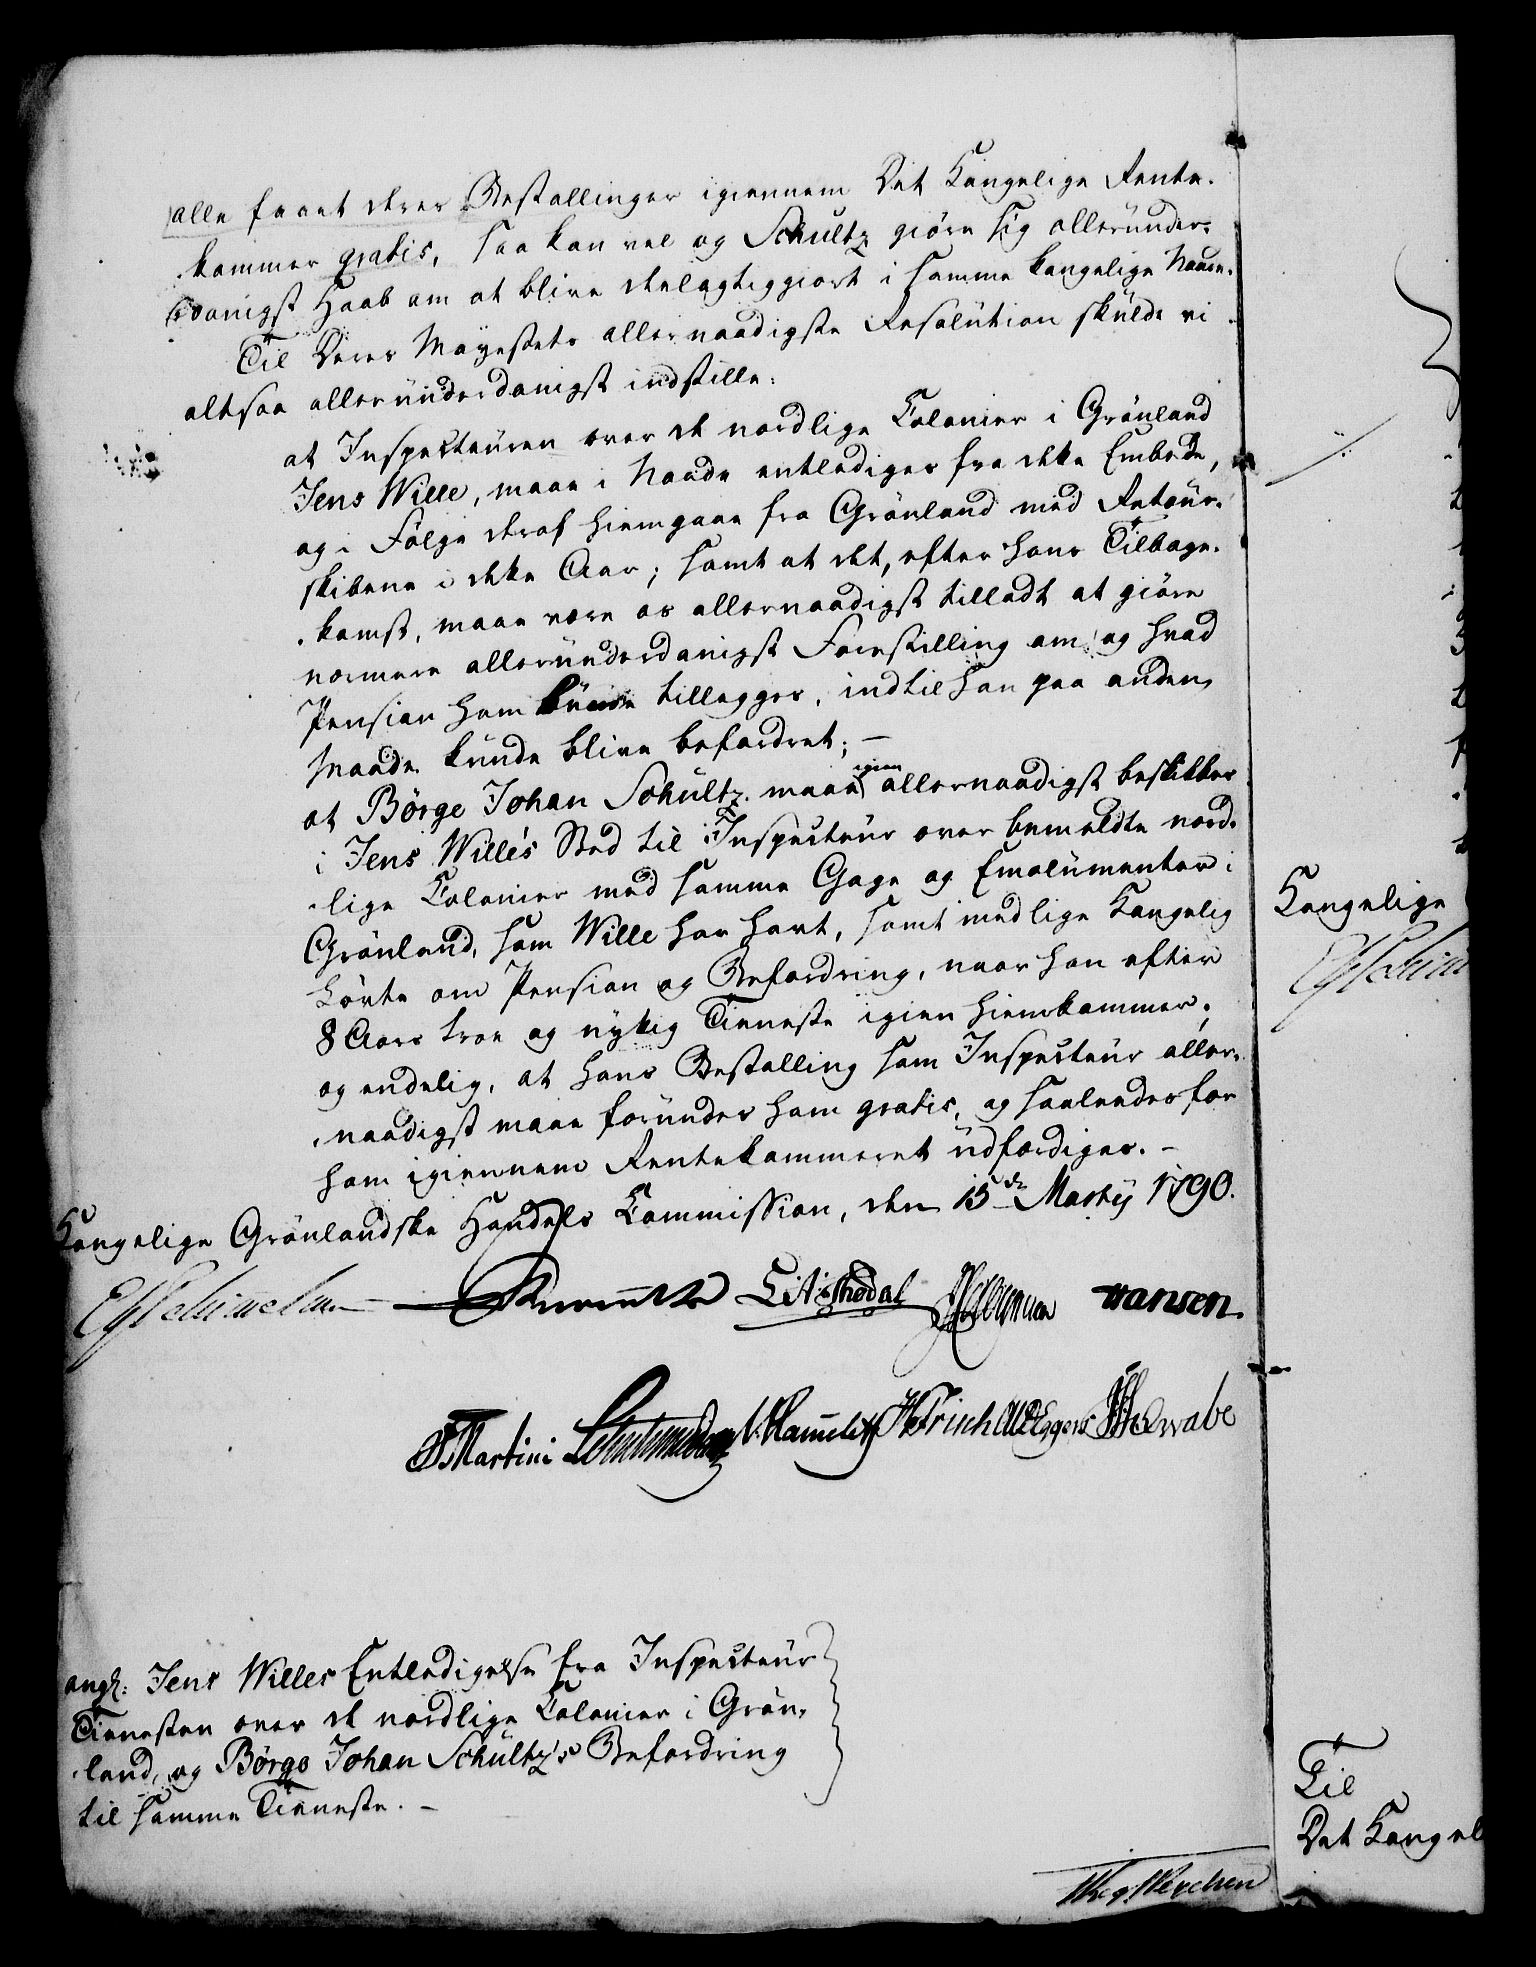 alle faaet deres Bestallinger igiennem Det Kongelige Rente-
kammer gratis, saa kan vel og Schultz giøre sig allerunder-
danigst Haab om at blive deelagtiggiort i samme kongelige Naade.
Til Deres Mayestets allernaadigste Resolution skulde vi
altsaa allerunderdanigst indstille:
at Inspecteuren over de nordlige Colonier i Grønland
Jens Wille, maae i Naade entlediges fra dette Embede,
og i Følge deraf hiemgaae fra Grønland med Retour-
skibene i dette Aar; samt at det, efter hans Tilbage-
komst, maae være os allernaadigst tilladt at giøre
nærmere allerunderdanigst Forestilling om, og hvad
Pension ham kunde tillægges, indtil han paa anden
Maade kunde blive befordret; —
at Børge Johan Schultz maae igien allernaadigst beskikkes
i Jens Wille's Sted til Inspecteur over bemeldte nord-
lige Colonier med samme Gage og Emolumenter i
Grønland, som Wille har havt, samt med lige Kongelig
Løvte om Pension og Befordring, naar han efter
8 Aars troe og nyttig Tieneste igien hiemkommer;
og endelig, at hans Bestalling som Inspecteur aller-
naadigst maae forundes ham gratis, og saaledes for
ham igiennem Rentekammeret udfærdiges. —
Kongelige Grønlandske Handels Commission, den 15de Martij 1790.
ESchimelmann Hansen
Martini JFrisch Eggers Schwabe
angl: Jens Willes Entledigelse fra Inspecteur
Tienesten over de nordlige Colonier i Grøn-
land, og Børge Johan Schultz's Befordring
til samme Tieneste. —
Kongelige
Til
Det Kongel